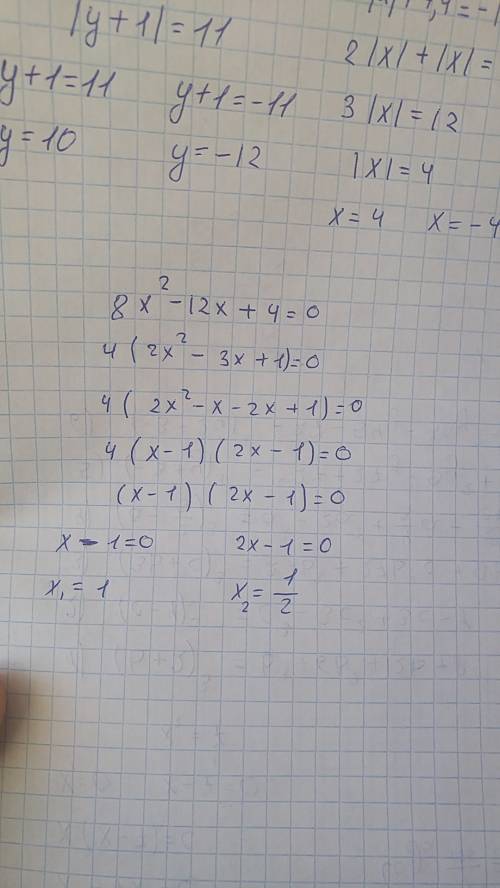 |y+1|=11
y+1=11 y+1=-11
y=10 y=-12
2|x|+|x|=
3|x|=12
|x|=4
x=4 x=-4
8x²-12x+4=0
4(2x²-3x+1)=0
4(2x²-x-2x+1)=0
4(x-1)(2x-1)=0
(x-1)(2x-1)=0
x-1=0 2x-1=0
x₁=1 x₂=1/2